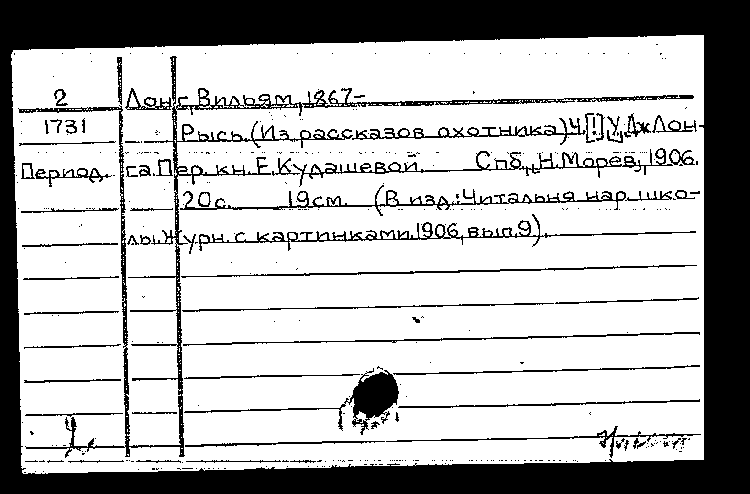 2 Лонг, Вильям, 1867-
1731 Рысь. (Из рассказов охотника) Ч.[!] У. Дж Лон-
Период. га. Пер. кн. Е. Кудашевой. Спб., Н. Морев, 1906.
20 с. 19 см. (В изд.: Читальня нар. шко-
лы. Журн. с картинками. 1906, вып. 9).